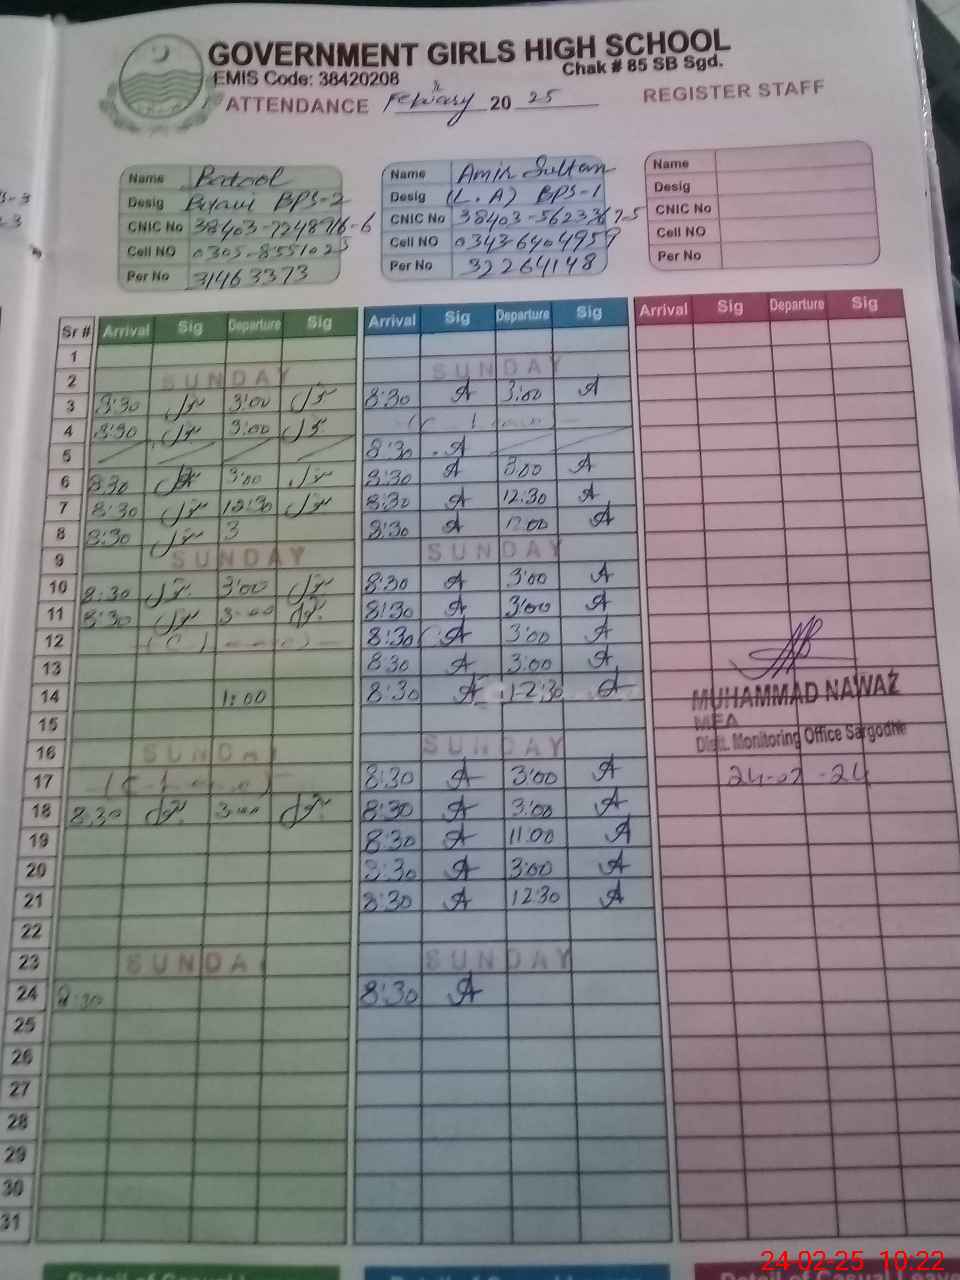 GOVERNMENT GIRLS HIGH SCHOOL
EMIS Code: 38420208 Chak # 85 SB Sgd.
ATTENDANCE February 20 25 REGISTER STAFF
Name Batool
Desig BPS-2
CNIC No 38403-7248916-6
Cell NO 0305-8551025
Per No 31463373
Name Amir Sultan
Desig (L.A) BPS-1
CNIC No 38403-5623367-5
Cell NO 0343-6404959
Per No 32264148
Name
Desig
CNIC No
Cell NO
Per No
Sr # Arrival Sig Departure Sig Arrival Sig Departure Sig Arrival Sig Departure Sig
1
2 SUNDAY SUNDAY
3 8:30 3:00 8:30 A 3:00 A
4 8:30 3:00
5 8:30 A
6 8:30 3:00 8:30 A 3:00 A
7 8:30 12:30 8:30 A 12:30 A
8 8:30 3 8:30 A 12:00 A
9 SUNDAY SUNDAY
10 8:30 3:00 8:30 A 3:00 A
11 8:30 3:00 8:30 A 3:00 A
12 8:30 A 3:00 A
13 8:30 A 3:00 A
14 1:00 8:30 A 12:30 A
15
16 SUNDAY SUNDAY
17 8:30 A 3:00 A
18 8:30 3:00 8:30 A 3:00 A
19 8:30 A 11:00 A
20 8:30 A 3:00 A
21 8:30 A 12:30 A
22
23 SUNDA SUNDAY
24 8:30 8:30 A
25
26
27
28
29
30
31
MUHAMMAD NAWAZ
MEA
Distt. Monitoring Office Sargodha
24-02-24
24-02-25 10:22